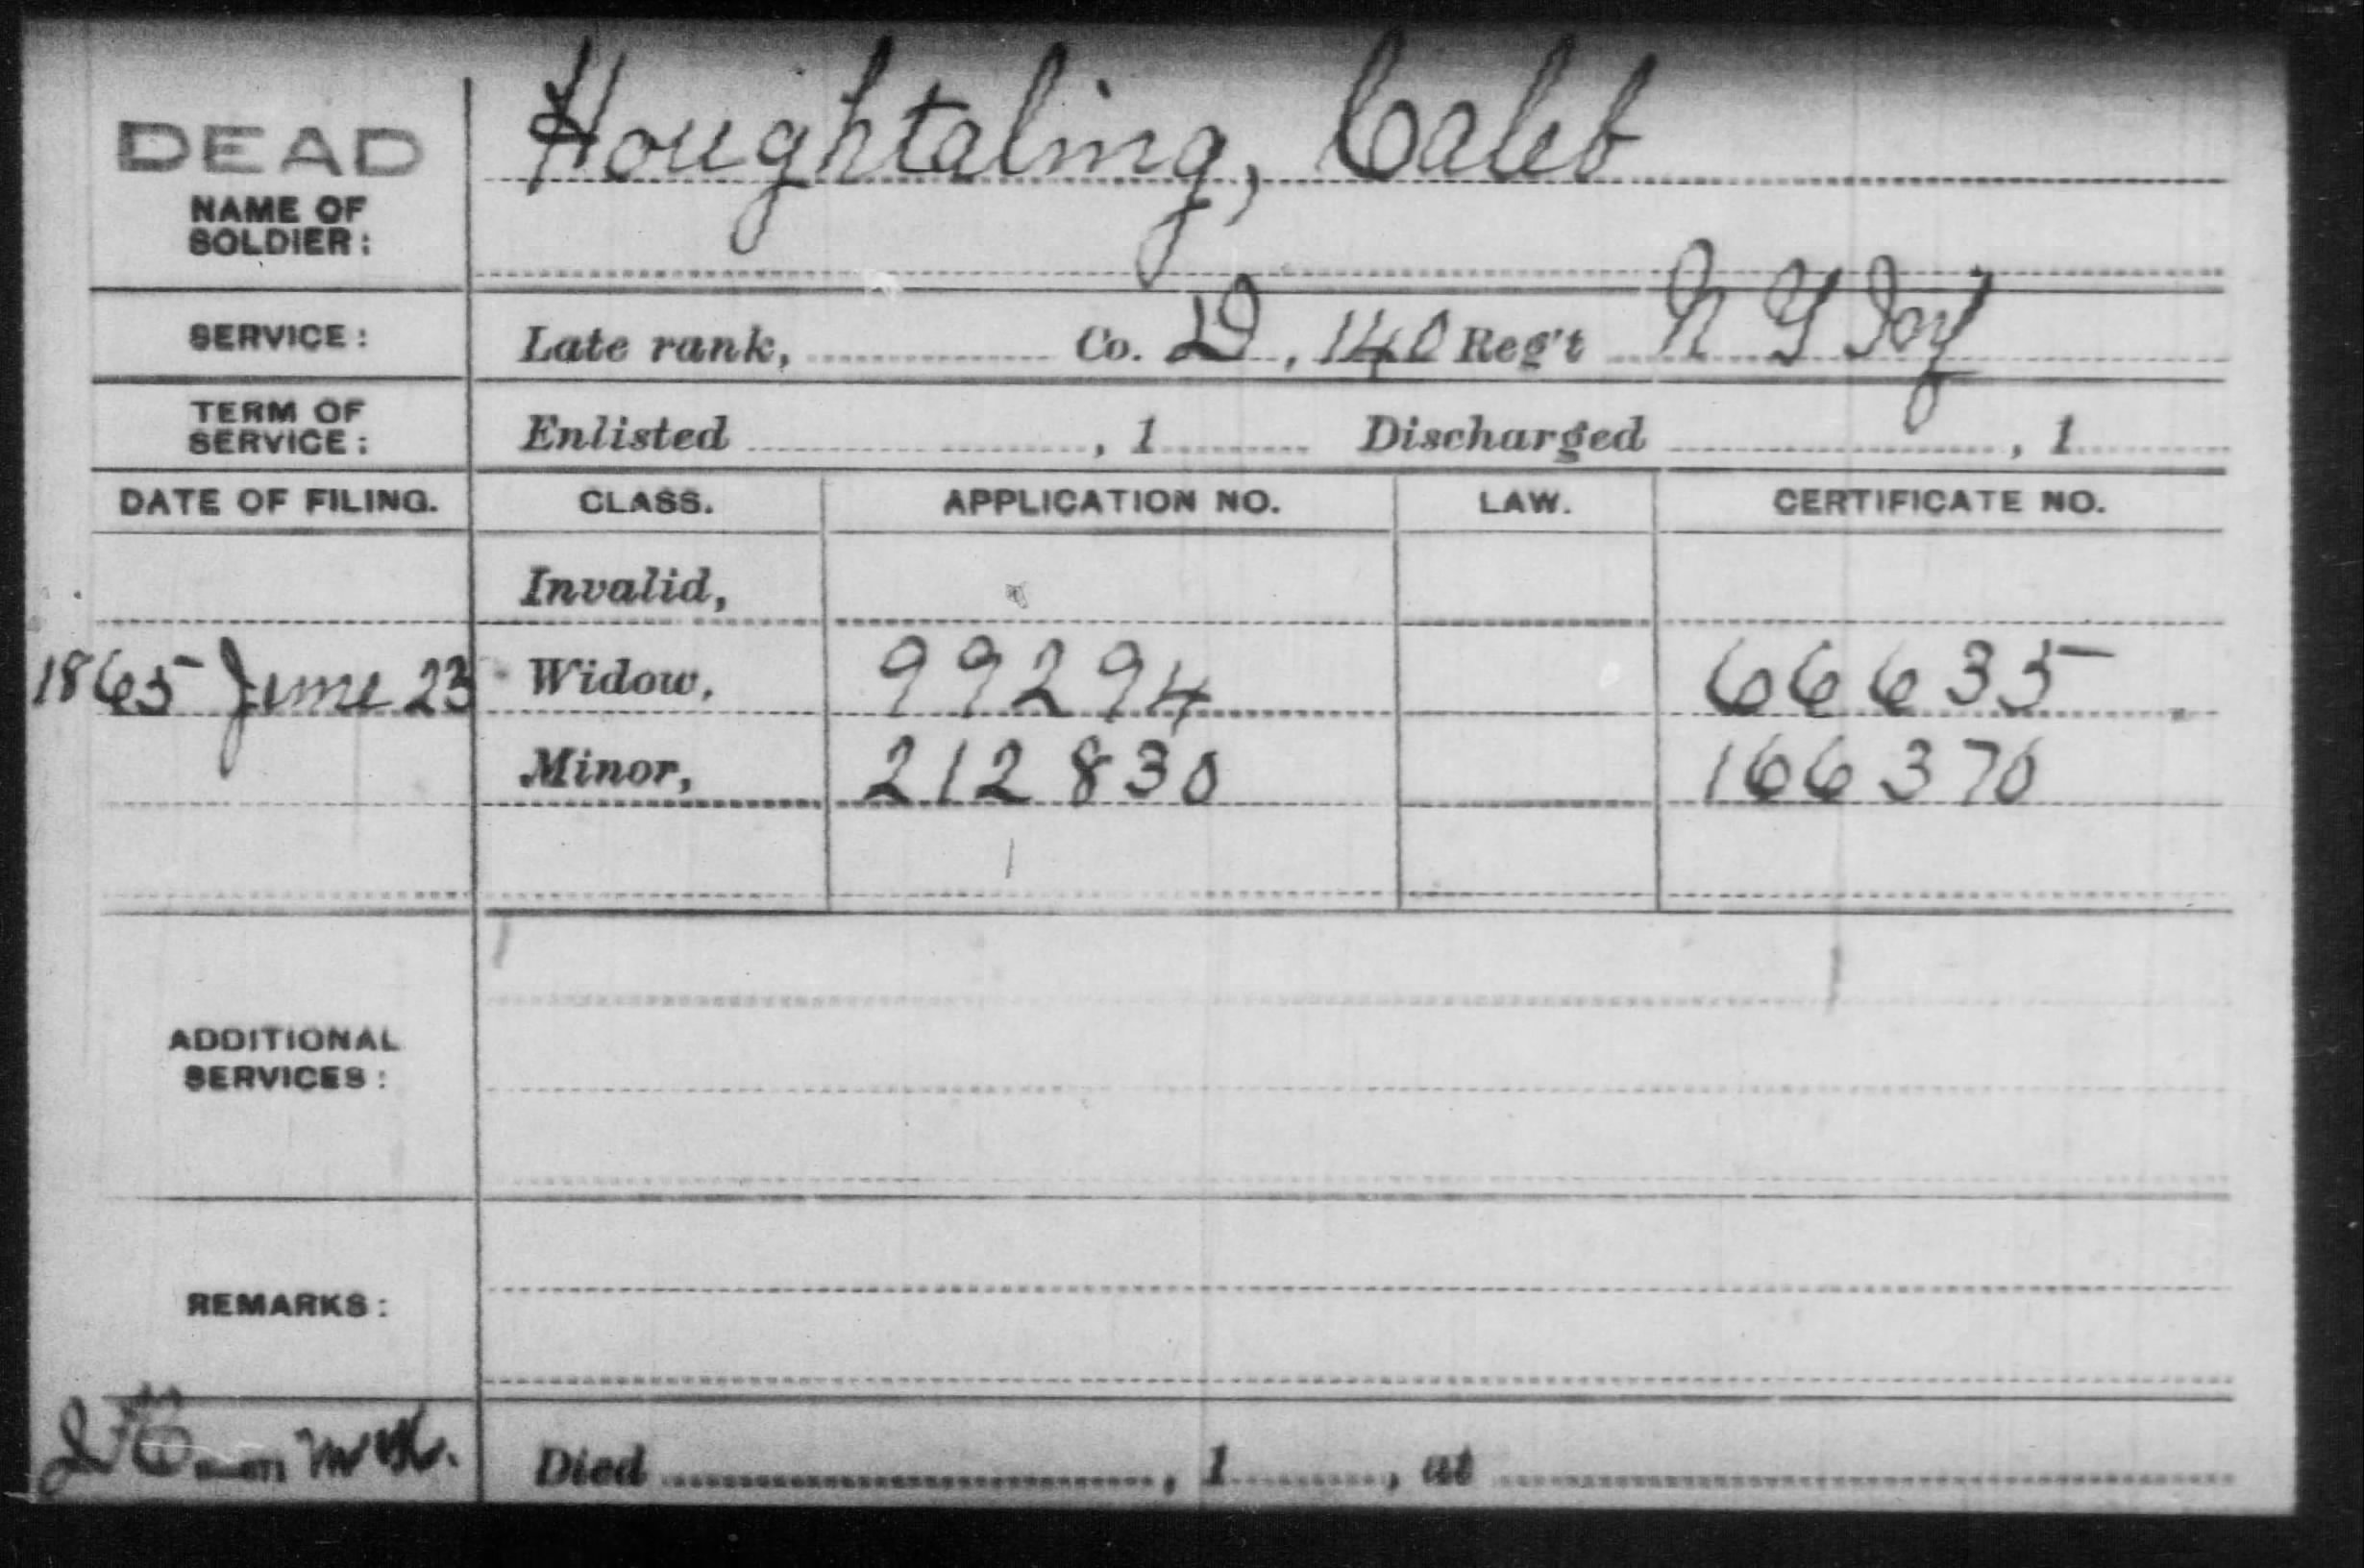 DEAD
Houghtaling, Caleb
NAME OF
SOLDIER:
SERVICE: Late rank, Co. D, 140 Reg't N Y Inf
TERM OF
SERVICE: Enlisted , 1 Discharged , 1
DATE OF FILING. CLASS. APPLICATION NO. LAW. CERTIFICATE NO.
Invalid,
1865 June 23 Widow, 99294 66635
Minor, 212830 166370
ADDITIONAL
SERVICES:
REMARKS:
Died , 1 , at